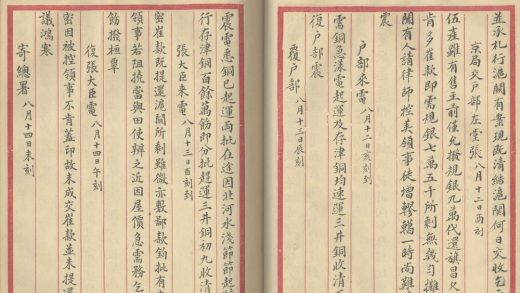 並承札行滬關有案現既清結滬關何日交收乞
京局交戶部左堂張 八月十二日酉刻
伍產雖有售主前僅允撥規銀九萬代還旗昌尺
肯多崔款即需規銀七萬五千所剩無幾攤
關有人請律師控美領事徒增轇轕一時尚難
震
戶部來電 八月十二日亥刻到
銅急漾電起運及存津銅均速運三井銅收清
復戶部震
覆戶部 八月十三日辰刻
震電悉銅已起運兩批在途因北河水淺節節起
行存津銅百餘萬觔即分批趕運三井銅初九收清
張大臣來電 八月十三日酉刻到
密崔款既提還滬關所剩雖微亦敷鄙款鈎批有
領事若阻撓當與田使辦之近因屋價急需務乞
飭撥桓覃
復張大臣電 八月十四日午刻
密因被控領事不肯蓋印故未成交崔款並未提還
議鴻寒
寄總署 八月十四日未刻